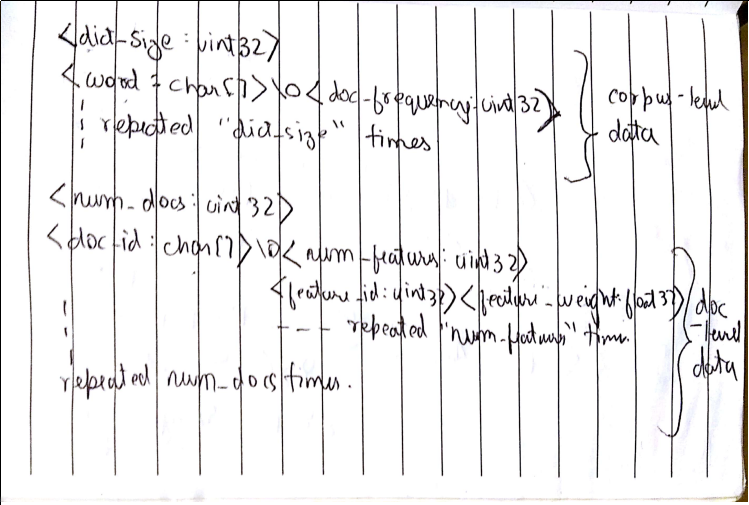 <dict-size : uint32>
<word : char[]>\0<doc-frequency: uint32>
repeated "dict_size" times
corpus-level
data
<num_docs: uint 32>
<doc-id : char[]>\0<num-features: uint32>
<feature_id: uint32><feature-weight: float32>
--- repeated "num-features" times.
repeated num_docs times.
doc
-level
data